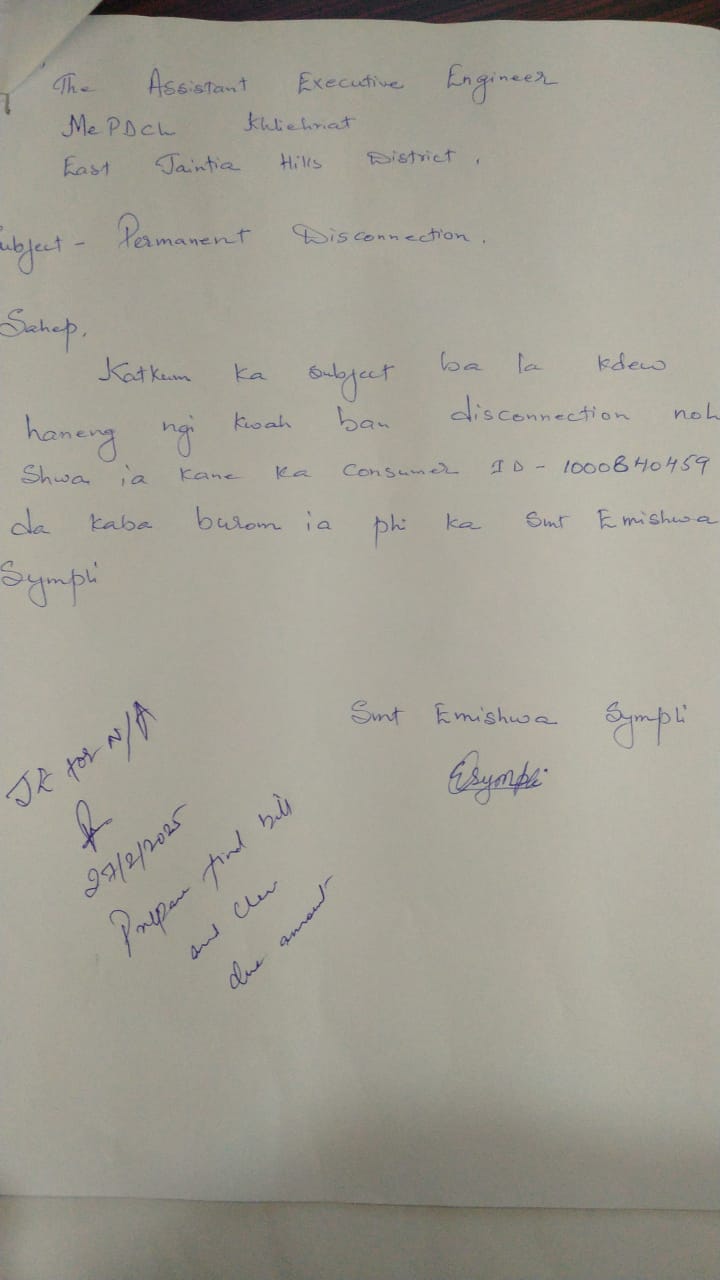 The Assistant Executive Engineer
MePDCL Khliehriat
East Jaintia Hills District.
ubject - Permanent Disconnection.
Sahep,
Katkum ka subject ba la kdew
haneng ngi kwah ban disconnection noh
Shwa ia kane ka Consumer ID - 1000840459
da kaba burom ia phi ka Smt Emishwa
Sympli
Smt Emishwa Sympli
ESympli
JE for N/A
27/2/2025
Prepare find bill
and clear
due amount